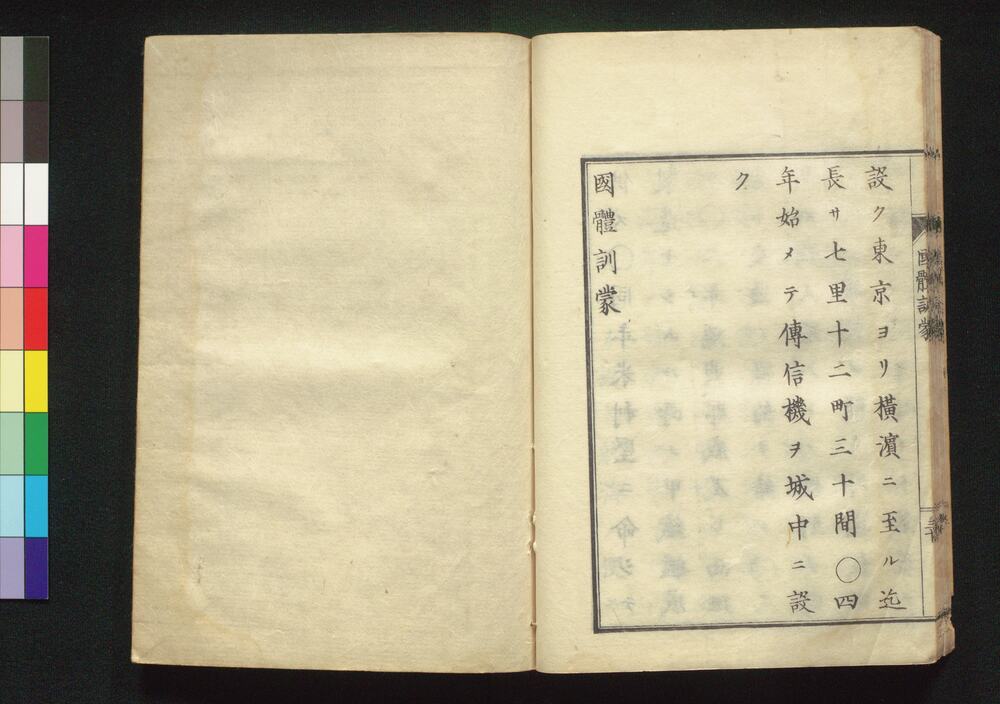 設ク東京ヨリ橫濱ニ至ル迄
長サ七里十二町三十間〇四
年始メテ傳信機ヲ城中ニ設
ク
國體訓蒙
國體訓蒙